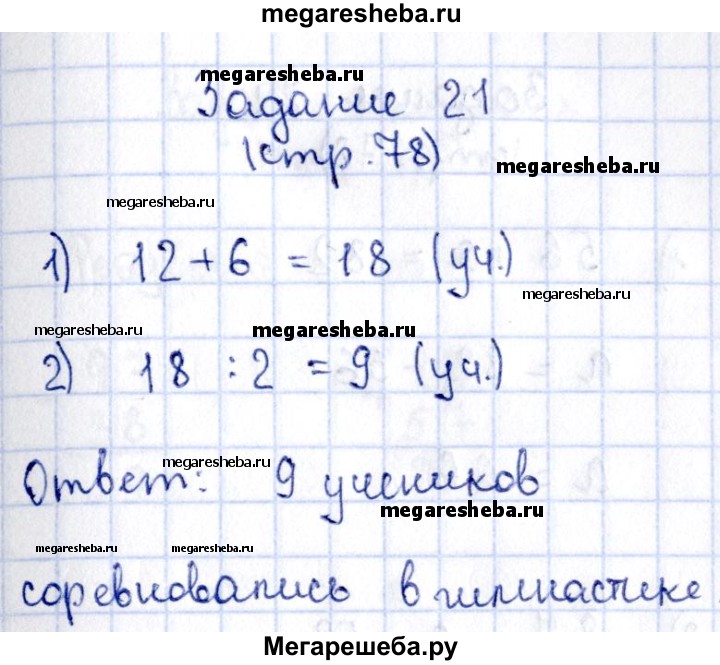 megaresheba.ru
megaresheba.ru
Задание 21
(стр. 78)
megaresheba.ru
megaresheba.ru
1) 12 + 6 = 18 (уч.)
megaresheba.ru
megaresheba.ru
megaresheba.ru
2) 18 : 2 = 9 (уч.)
megaresheba.ru
Ответ: 9 учеников
megaresheba.ru
megaresheba.ru
megaresheba.ru
соревновались в гимнастике
Мегарешеба.ру